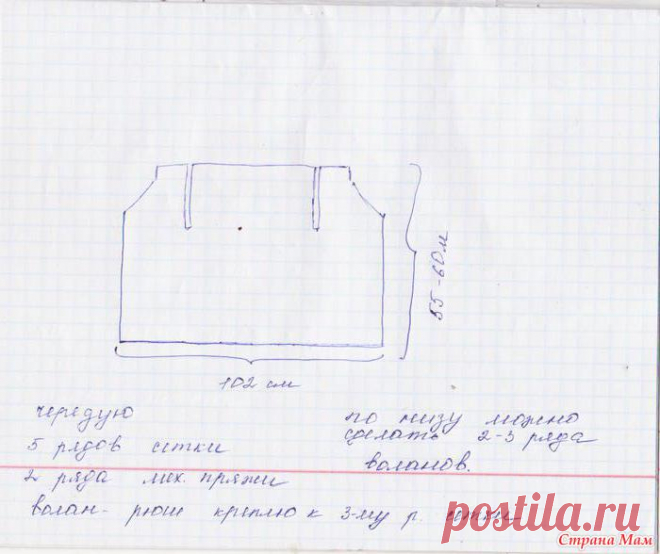 55-60 м
102 см
чередую
5 рядов сетки
2 ряда мех. пряжи
волан- рюш креплю к 3-му р. сетки
по низу можно
сделать 2-3 ряда
воланов.
postila.ru
Страна Мам